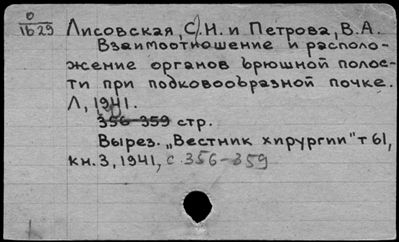 0
1629
Лисовская, С.Н. и Петрова, В.А.
Взаимоотношение и располо-
жение органов брюшной полос-
ти при подковообразной почке.
Л, 1941.
356-359 стр.
Вырез. „Вестник хирургии" т 61,
кн. 3, 1941, с. 356-359